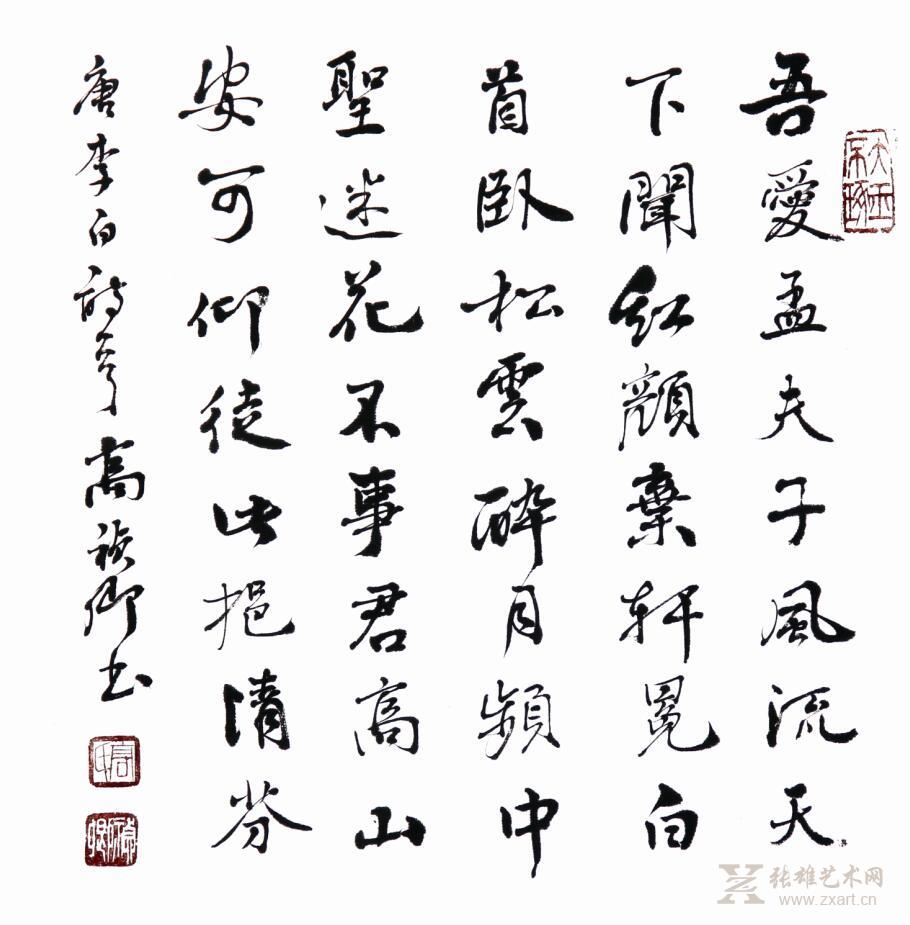 吾愛孟夫子風流天
下聞紅顏棄軒冕白
首臥松雲醉月頻中
聖迷花不事君高山
安可仰徒此挹清芬
唐李白詩一首高卿书
张雄艺术网
www.zxart.cn